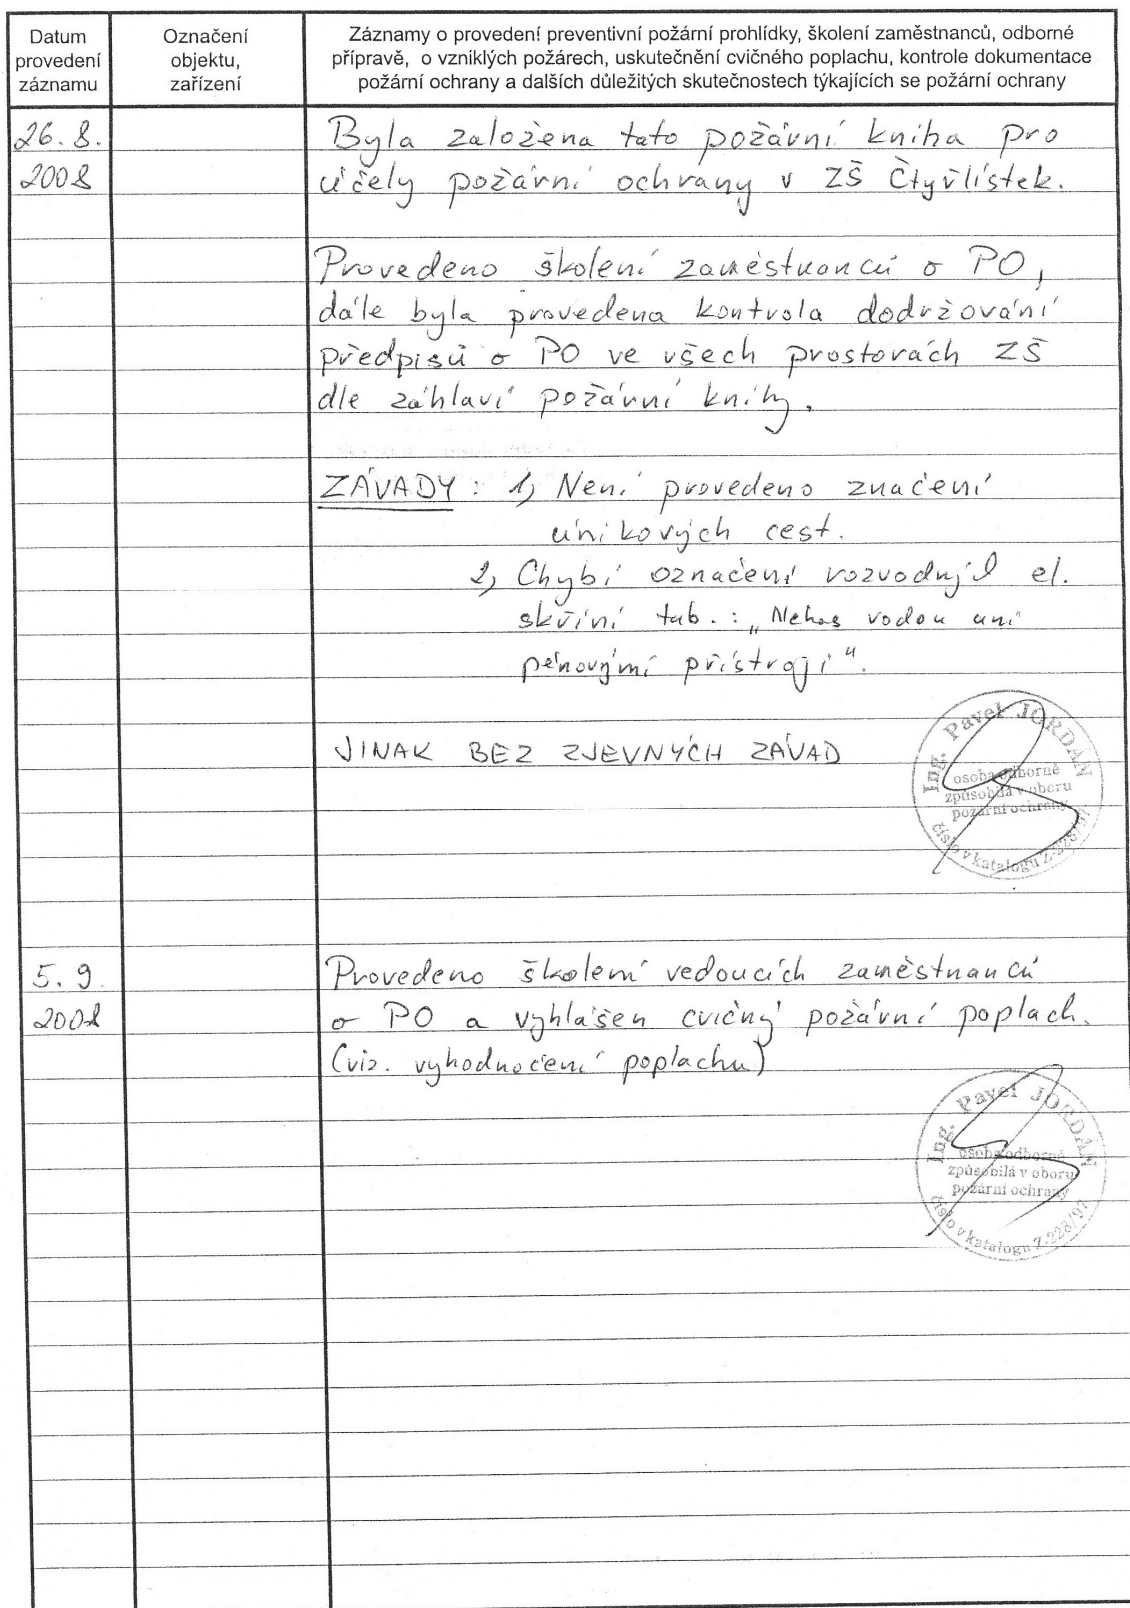 Datum
provedení
záznamu
Označení
objektu,
zařízení
Záznamy o provedení preventivní požární prohlídky, školení zaměstnanců, odborné
přípravě, o vzniklých požárech, uskutečnění cvičného poplachu, kontrole dokumentace
požární ochrany a dalších důležitých skutečnostech týkajících se požární ochrany
26. 8. Byla založena tato požární kniha pro
2008 účely požární ochrany v ZŠ Čtyřlístek.
Provedeno školení zaměstnanců o PO,
dále byla provedena kontrola dodržování
předpisů o PO ve všech prostorách ZŠ
dle záhlaví požární knihy.
ZÁVADY: 1) Není provedeno značení
únikových cest.
2) Chybí označení rozvodných el.
skříní tab.: „Nehas vodou ani
pěnovými přístroji".
JINAK BEZ ZJEVNÝCH ZÁVAD
Ing. Pavel JORDÁN
osoba odborně
způsobilá v oboru
požární ochrany
číslo v katalogu Z-228/97
5. 9. Provedeno školení vedoucích zaměstnanců
2008 o PO a vyhlášen cvičný požární poplach.
(viz. vyhodnocení poplachu)
Ing. Pavel JORDÁN
osoba odborně
způsobilá v oboru
požární ochrany
číslo v katalogu Z-228/97